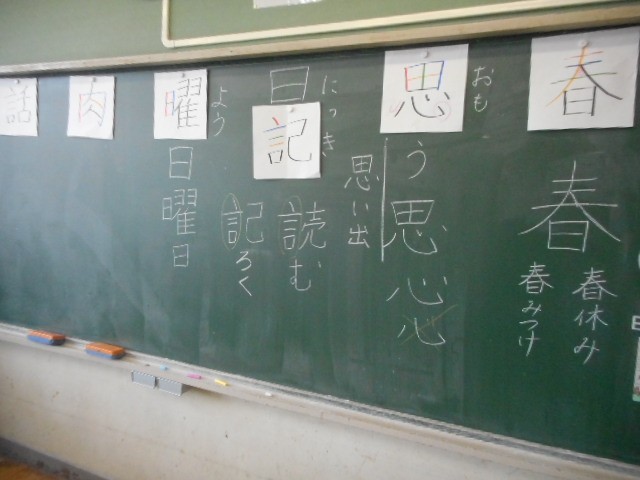 春
春
春休み
春みつけ
おも
思
う
思
心
心
思い出
にっき
日記
読む
記ろく
よう
曜
日曜日
肉
話